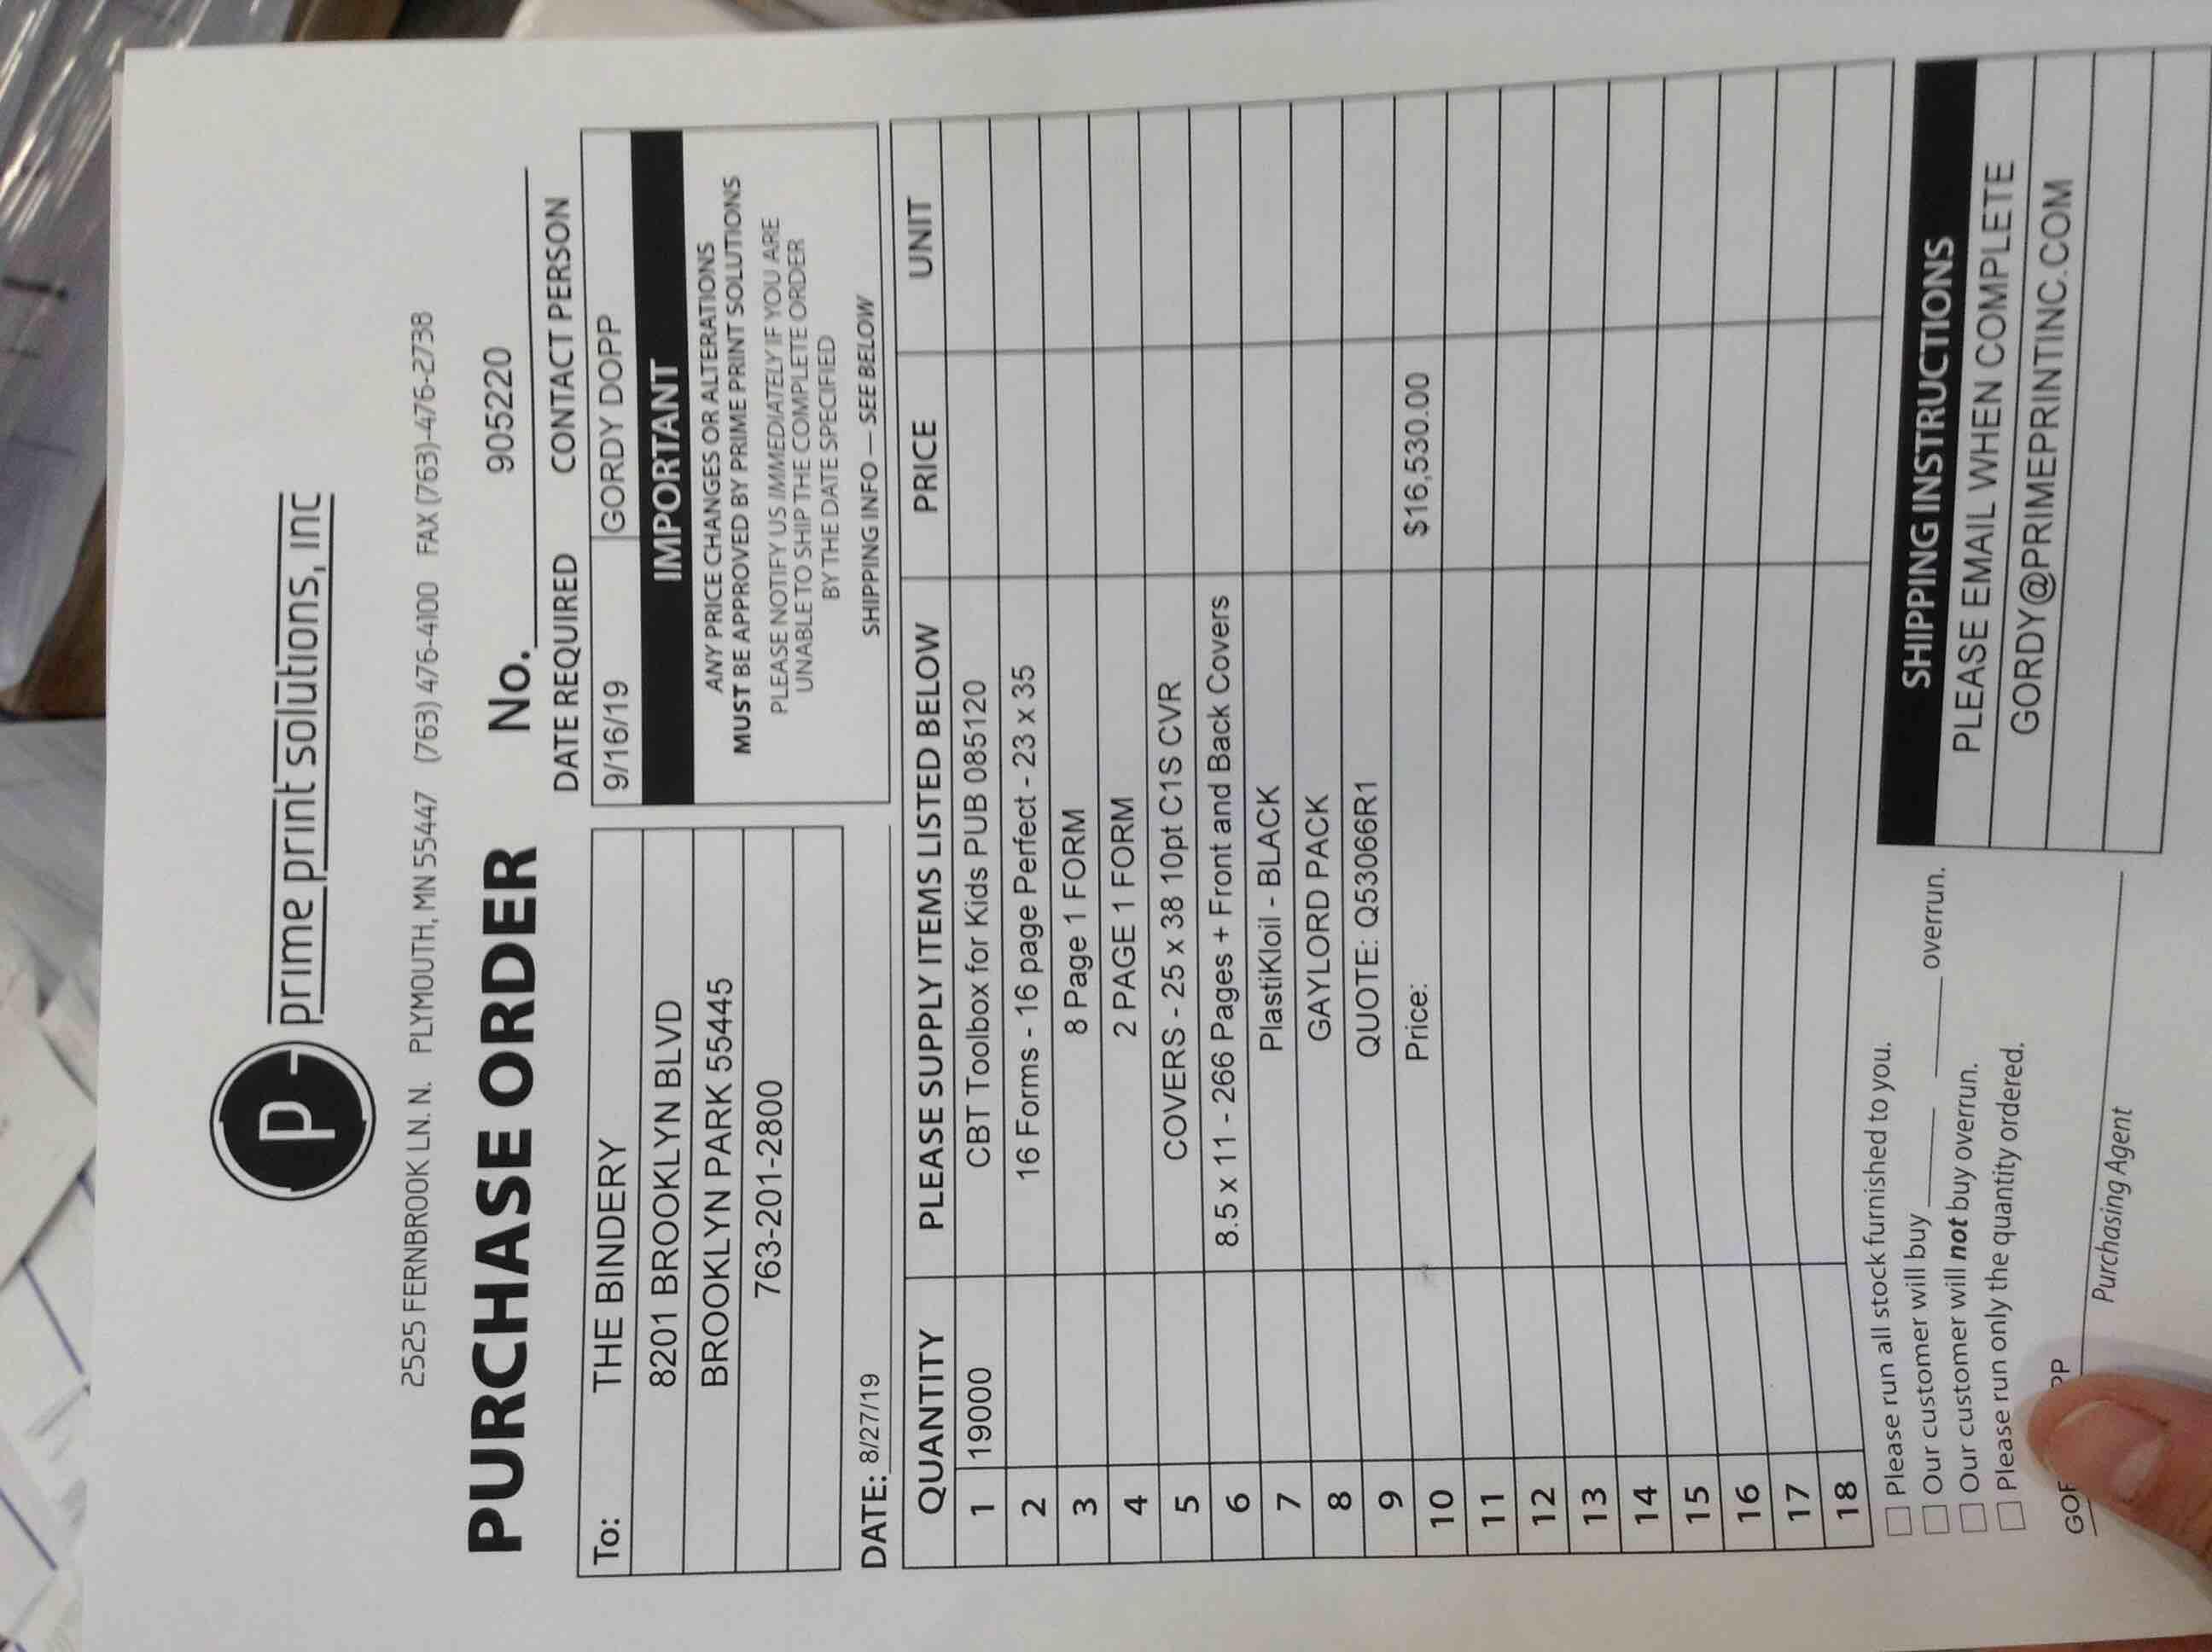 P
prime print solutions, inc
2525 FERNBROOK LN. N. PLYMOUTH, MN 55447 (763) 476-4100 FAX (763)-476-2738
PURCHASE ORDER No. 905220
To: THE BINDERY
8201 BROOKLYN BLVD
BROOKLYN PARK 55445
763-201-2800
DATE REQUIRED CONTACT PERSON
9/16/19 GORDY DOPP
IMPORTANT
ANY PRICE CHANGES OR ALTERATIONS
MUST BE APPROVED BY PRIME PRINT SOLUTIONS
PLEASE NOTIFY US IMMEDIATELY IF YOU ARE
UNABLE TO SHIP THE COMPLETE ORDER
BY THE DATE SPECIFIED
SHIPPING INFO — SEE BELOW
DATE: 8/27/19
QUANTITY PLEASE SUPPLY ITEMS LISTED BELOW PRICE UNIT
1 19000 CBT Toolbox for Kids PUB 085120
2 16 Forms - 16 page Perfect - 23 x 35
3 8 Page 1 FORM
4 2 PAGE 1 FORM
5 COVERS - 25 x 38 10pt C1S CVR
6 8.5 x 11 - 266 Pages + Front and Back Covers
7 PlastiKloil - BLACK
8 GAYLORD PACK
9 QUOTE: Q53066R1
10 Price: $16,530.00
11
12
13
14
15
16
17
18
Please run all stock furnished to you.
Our customer will buy ______ ______ overrun.
Our customer will not buy overrun.
Please run only the quantity ordered.
Purchasing Agent
SHIPPING INSTRUCTIONS
PLEASE EMAIL WHEN COMPLETE
GORDY@PRIMEPRINTINC.COM